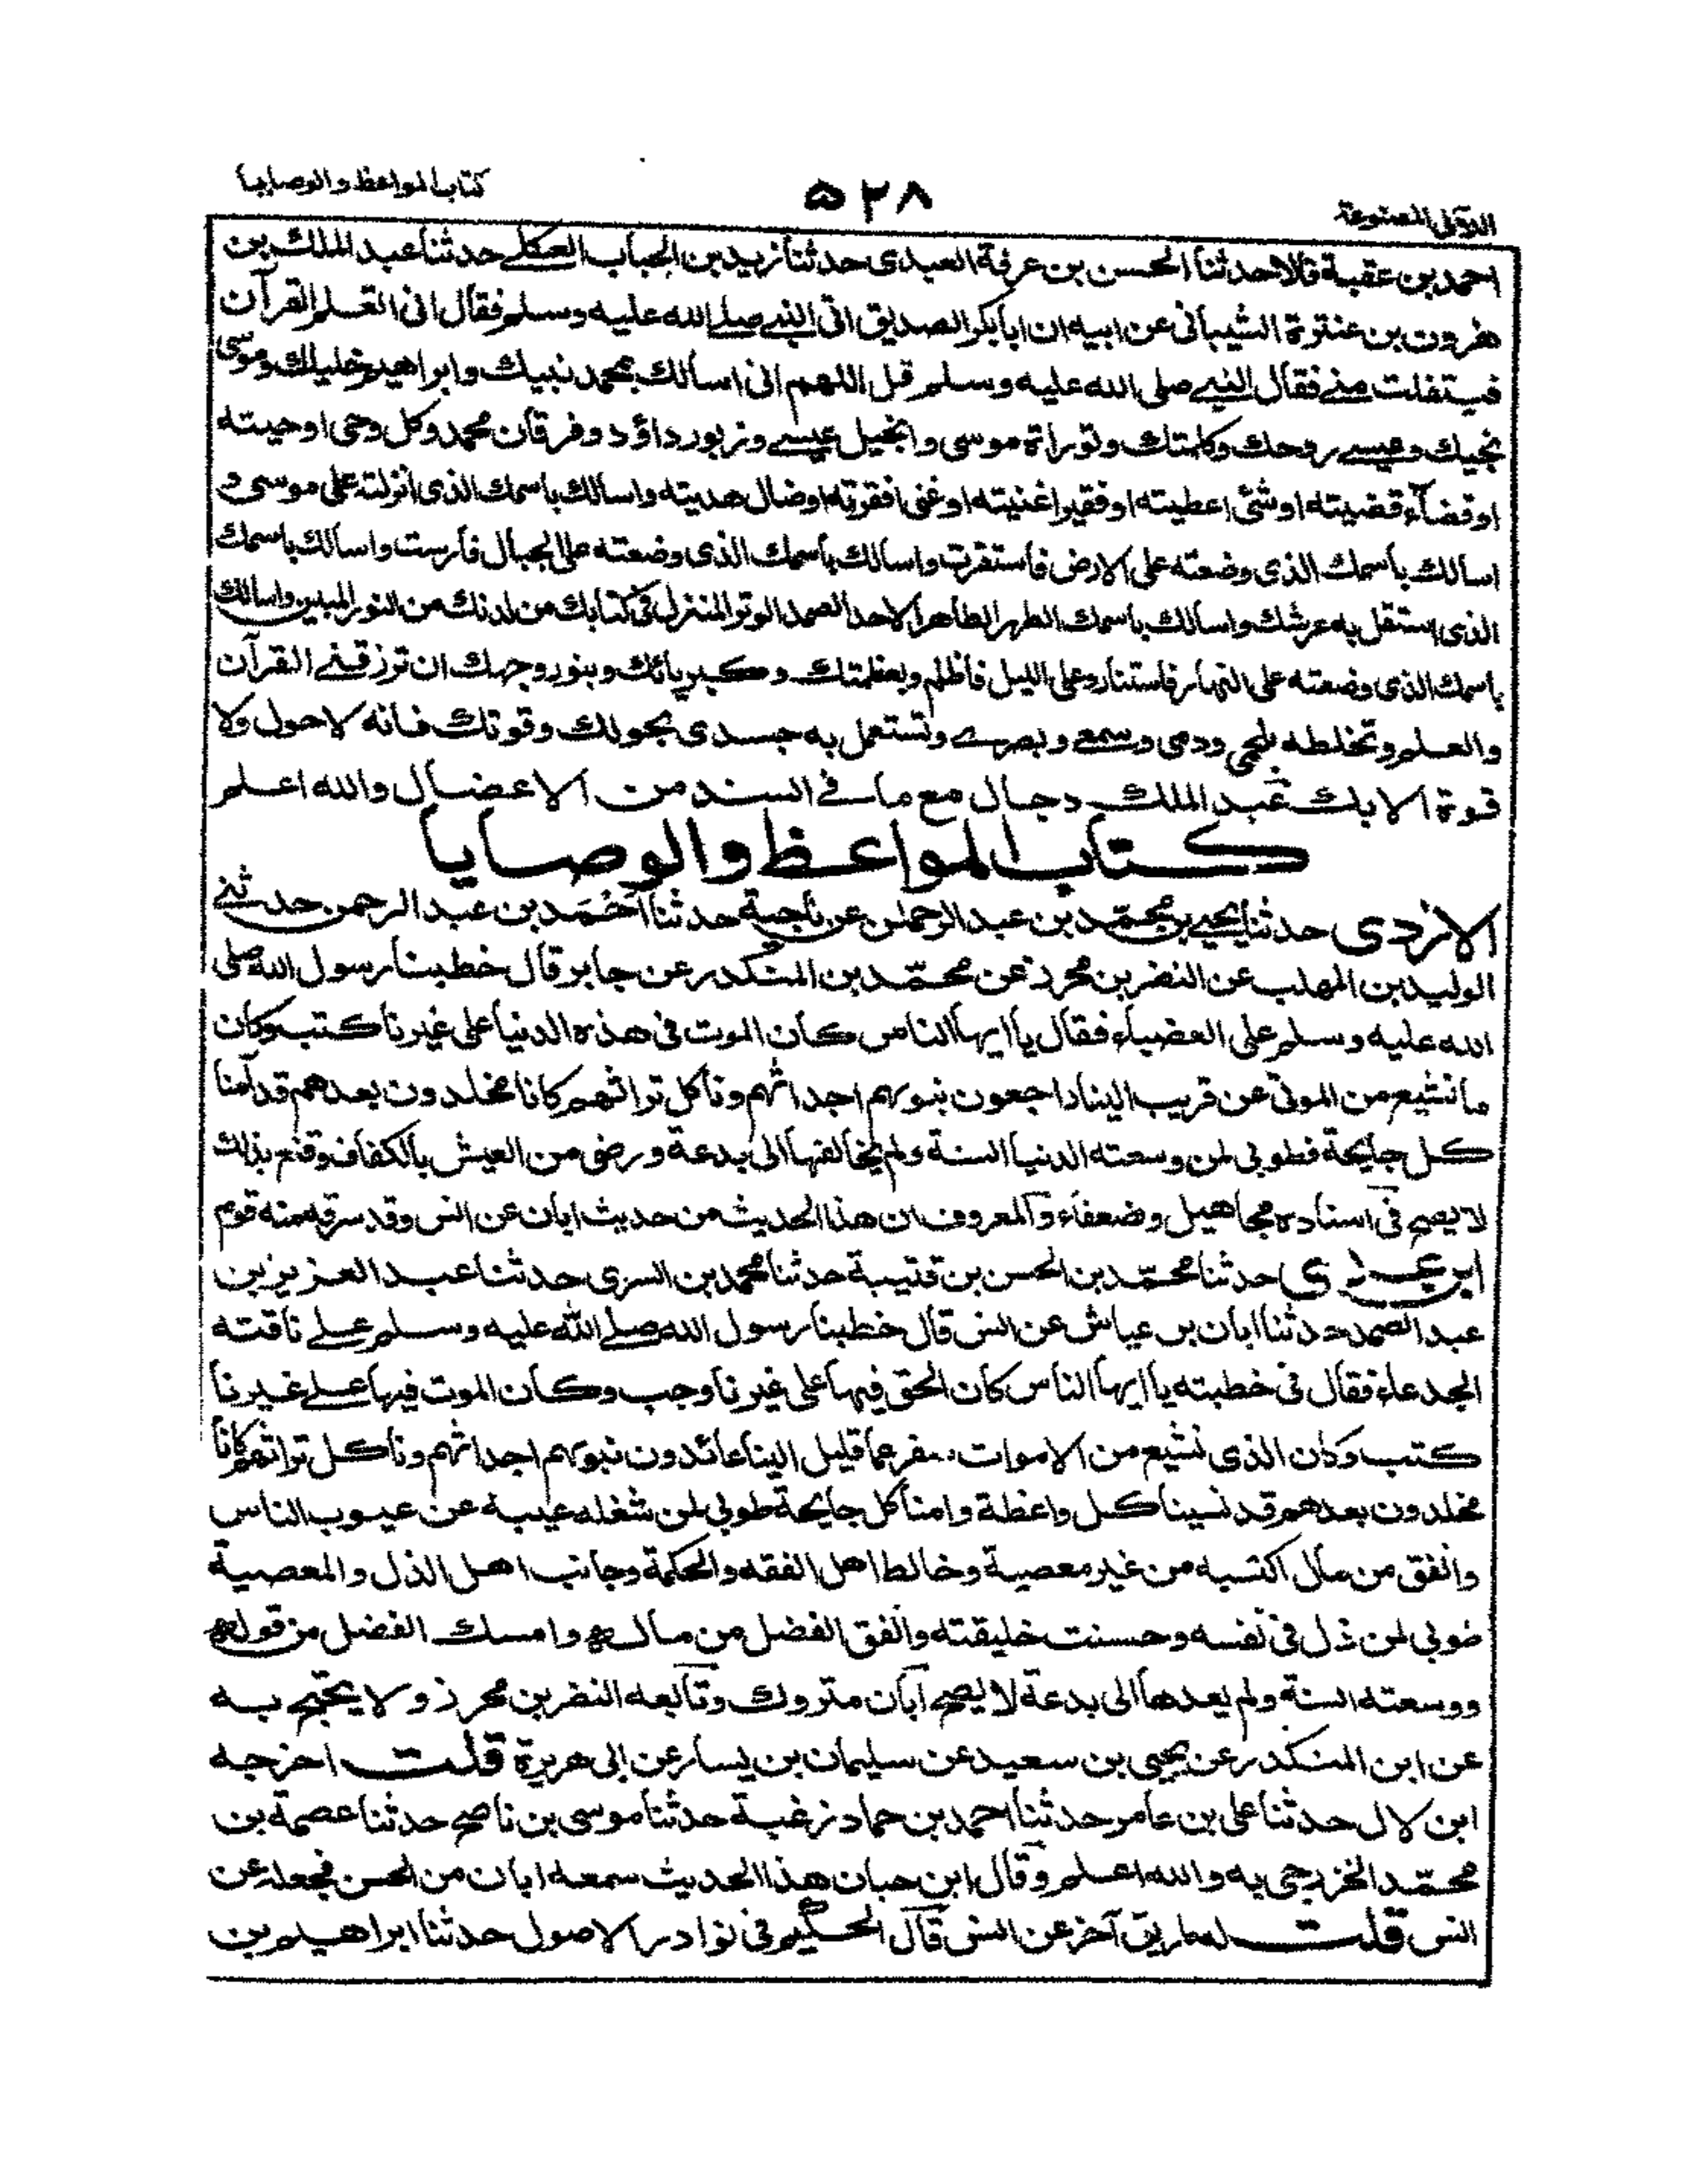 اللآلى المصنوعة
۵۲۸
كتاب المواعظ والوصايا
احمد بن عقبة قالا حدثنا الحسن بن عرفة العبدى حدثنا زيد بن الحباب العكلے حدثنا عبد الملك بن
هٰرون بن عنترة الشيبانى عن ابيه ان ابا بكر الصديق اتى النبے صلے الله عليه وسلم فقال انى اتعلم القرآن
فيتفلت منے فقال النبے صلى الله عليه وسلم قل اللهم انى اسالك بمحمد نبيك وابراهيم خليلك وموسى
نجيك وعيسے روحك وكلمتك وتوراة موسى وانجيل عيسے وزبور داؤد وفرقان محمد وكل وحى اوحيته
او قضآء قضيته او شئ اعطيته او فقير اغنيته او غنى افقرته او ضال هديته واسالك باسمك الذى انزلته على موسى و
اسالك باسمك الذى وضعته على الارض فاستقرت واسالك باسمك الذى وضعته على الجبال فارست واسالك باسمك
الذى استقل به عرشك واسالك باسمك الطهر الطاهر الاحد الصمد الوتر المنزل فى كتابك من لدنك من النور المبين واسالك
باسمك الذى وضعته على النهار فاستنار وعلى الليل فاظلم وبعظمتك وكبريائك وبنور وجهك ان ترزقنے القرآن
والعلم وتخلطه بلحمى ودمى وسمعے وبصرے وتستعمل به جسدى بحولك وقوتك فانه لا حول ولا
قوة الا بك عبد الملك دجال مع ما فے السند من الاعضال والله اعلم
كتاب المواعظ والوصايا
الازدى حدثنا يحيے بن محمّد بن عبد الرحمٰن عن ناجية حدثنا احمد بن عبد الرحمن حدثنے
الوليد بن المهلب عن النضر بن محرز عن محمّد بن المنكدر عن جابر قال خطبنا رسول الله صلى
الله عليه وسلم على العضباء فقال يا ايها الناس كان الموت فى هذه الدنيا على غيرنا كتب وكان
ما نشيع من الموتى عن قريب الينا راجعون بنوبهم اجداثهم وناكل تراثهم كانا مخلدون بعدهم قد آمنا
كل جايحة فطوبى لمن وسعته الدنيا السنة ولم يخالفها الى بدعة ورضى من العيش بالكفاف وقنع بذلك
لا يصح فى اسناده مجاهيل وضعفاء والمعروف ان هذا الحديث من حديث ابان عن انس وقد سرقه منه قوم
ابن عدى حدثنا محمّد بن الحسن بن قتيبة حدثنا محمد بن السرى حدثنا عبد العزيز بن
عبد الصمد حدثنا ابان بن عياش عن انس قال خطبنا رسول الله صلے الله عليه وسلم علے ناقته
الجدعاء فقال فى خطبته يا ايها الناس كان الحق فيها على غيرنا وجب وكان الموت فيها علے غيرنا
كتب وكان الذى نشيع من الاموات سفر عما قليل الينا عائدون نبوبهم اجداثهم وناكل تراثهم كانا
مخلدون بعدهم قد نسينا كل واعظة وامنا كل جايحة طوبى لمن شغله عيبه عن عيوب الناس
وانفق من مال اكتسبه من غير معصية وخالط اهل الفقه والحكمة وجانب اهل الذل والمعصية
طوبى لمن ذل فى نفسه وحسنت خليقته وانفق الفضل من ماله وامسك الفضل من قوله
ووسعته السنة ولم يعدها الى بدعة لا يصح ابان متروك وتابعه النضر بن محرز ولا يحتج به
عن ابن المنكدر عن يحيى بن سعيد عن سليمان بن يسار عن ابى هريرة قلت اخرجه
ابن لال حدثنا على بن عامر حدثنا احمد بن حماد زغبة حدثنا موسى بن ناصح حدثنا عصمة بن
محمّد الخزرجى به والله اعلم وقال ابن حبان هذا الحديث سمعه ابان من الحسن فجعله عن
انس قلت له طريق آخر عن انس قال الحكيم فى نوادر الاصول حدثنا ابراهيم بن